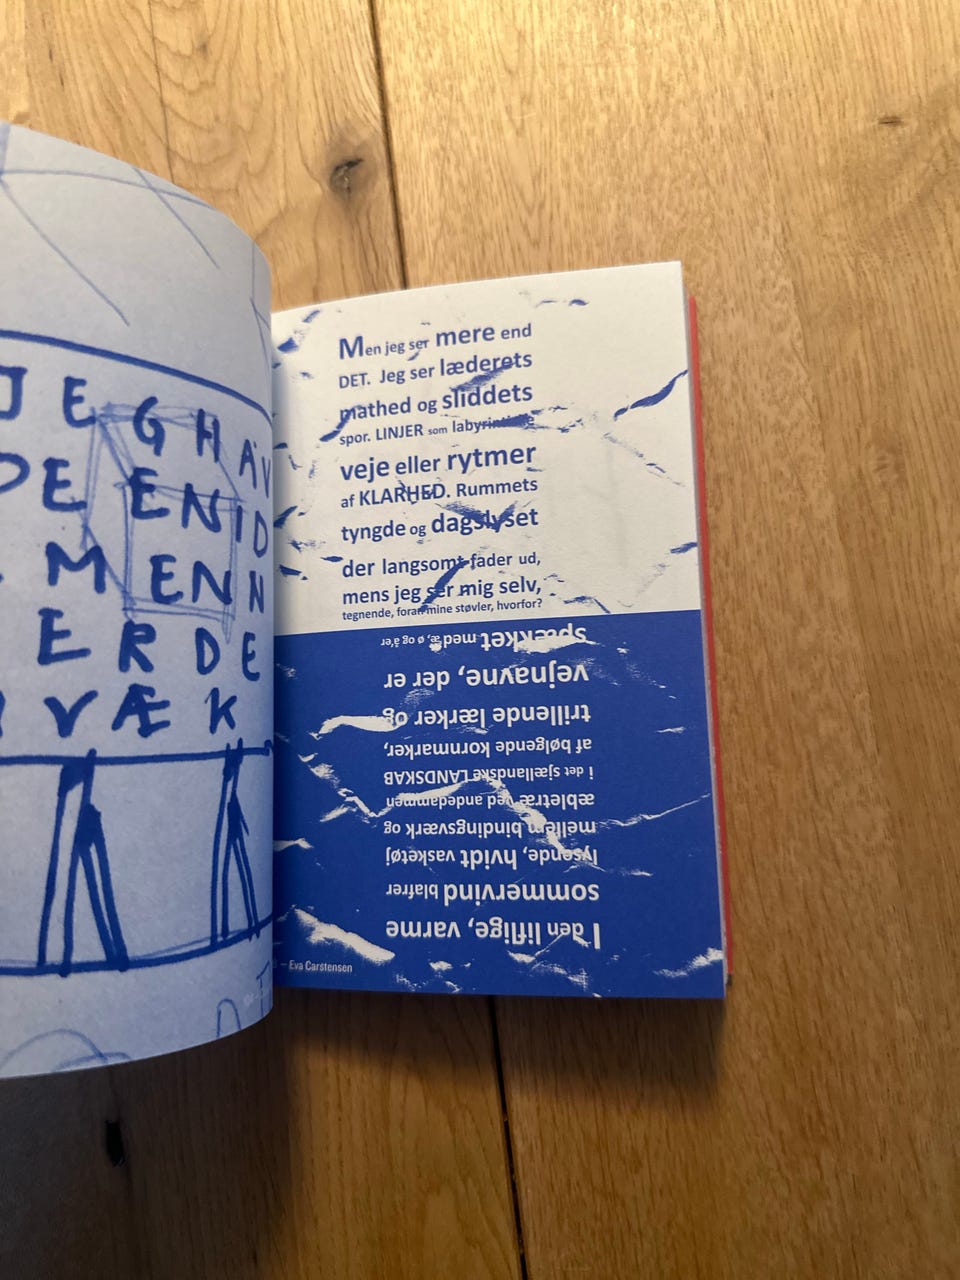 JEGHAV
DE ENID
MENN
ERDE
VÆK
Men jeg ser mere end
DET. Jeg ser læderets
mathed og sliddets
spor. LINJER som labyrintiske
veje eller rytmer
af KLARHED. Rummets
tyngde og dagslyset
der langsomt fader ud,
mens jeg ser mig selv,
tegnende, foran mine støvler, hvorfor?
I den liflige, varme
sommervind blafrer
lysende, hvidt vasketøj
mellem bindingsværk og
æbletræ ved andedammen
i det sjællandske LANDSKAB
af bølgende kornmarker,
trillende lærker og
vejnavne, der er
spækket med æ, ø og å'er
— Eva Carstensen